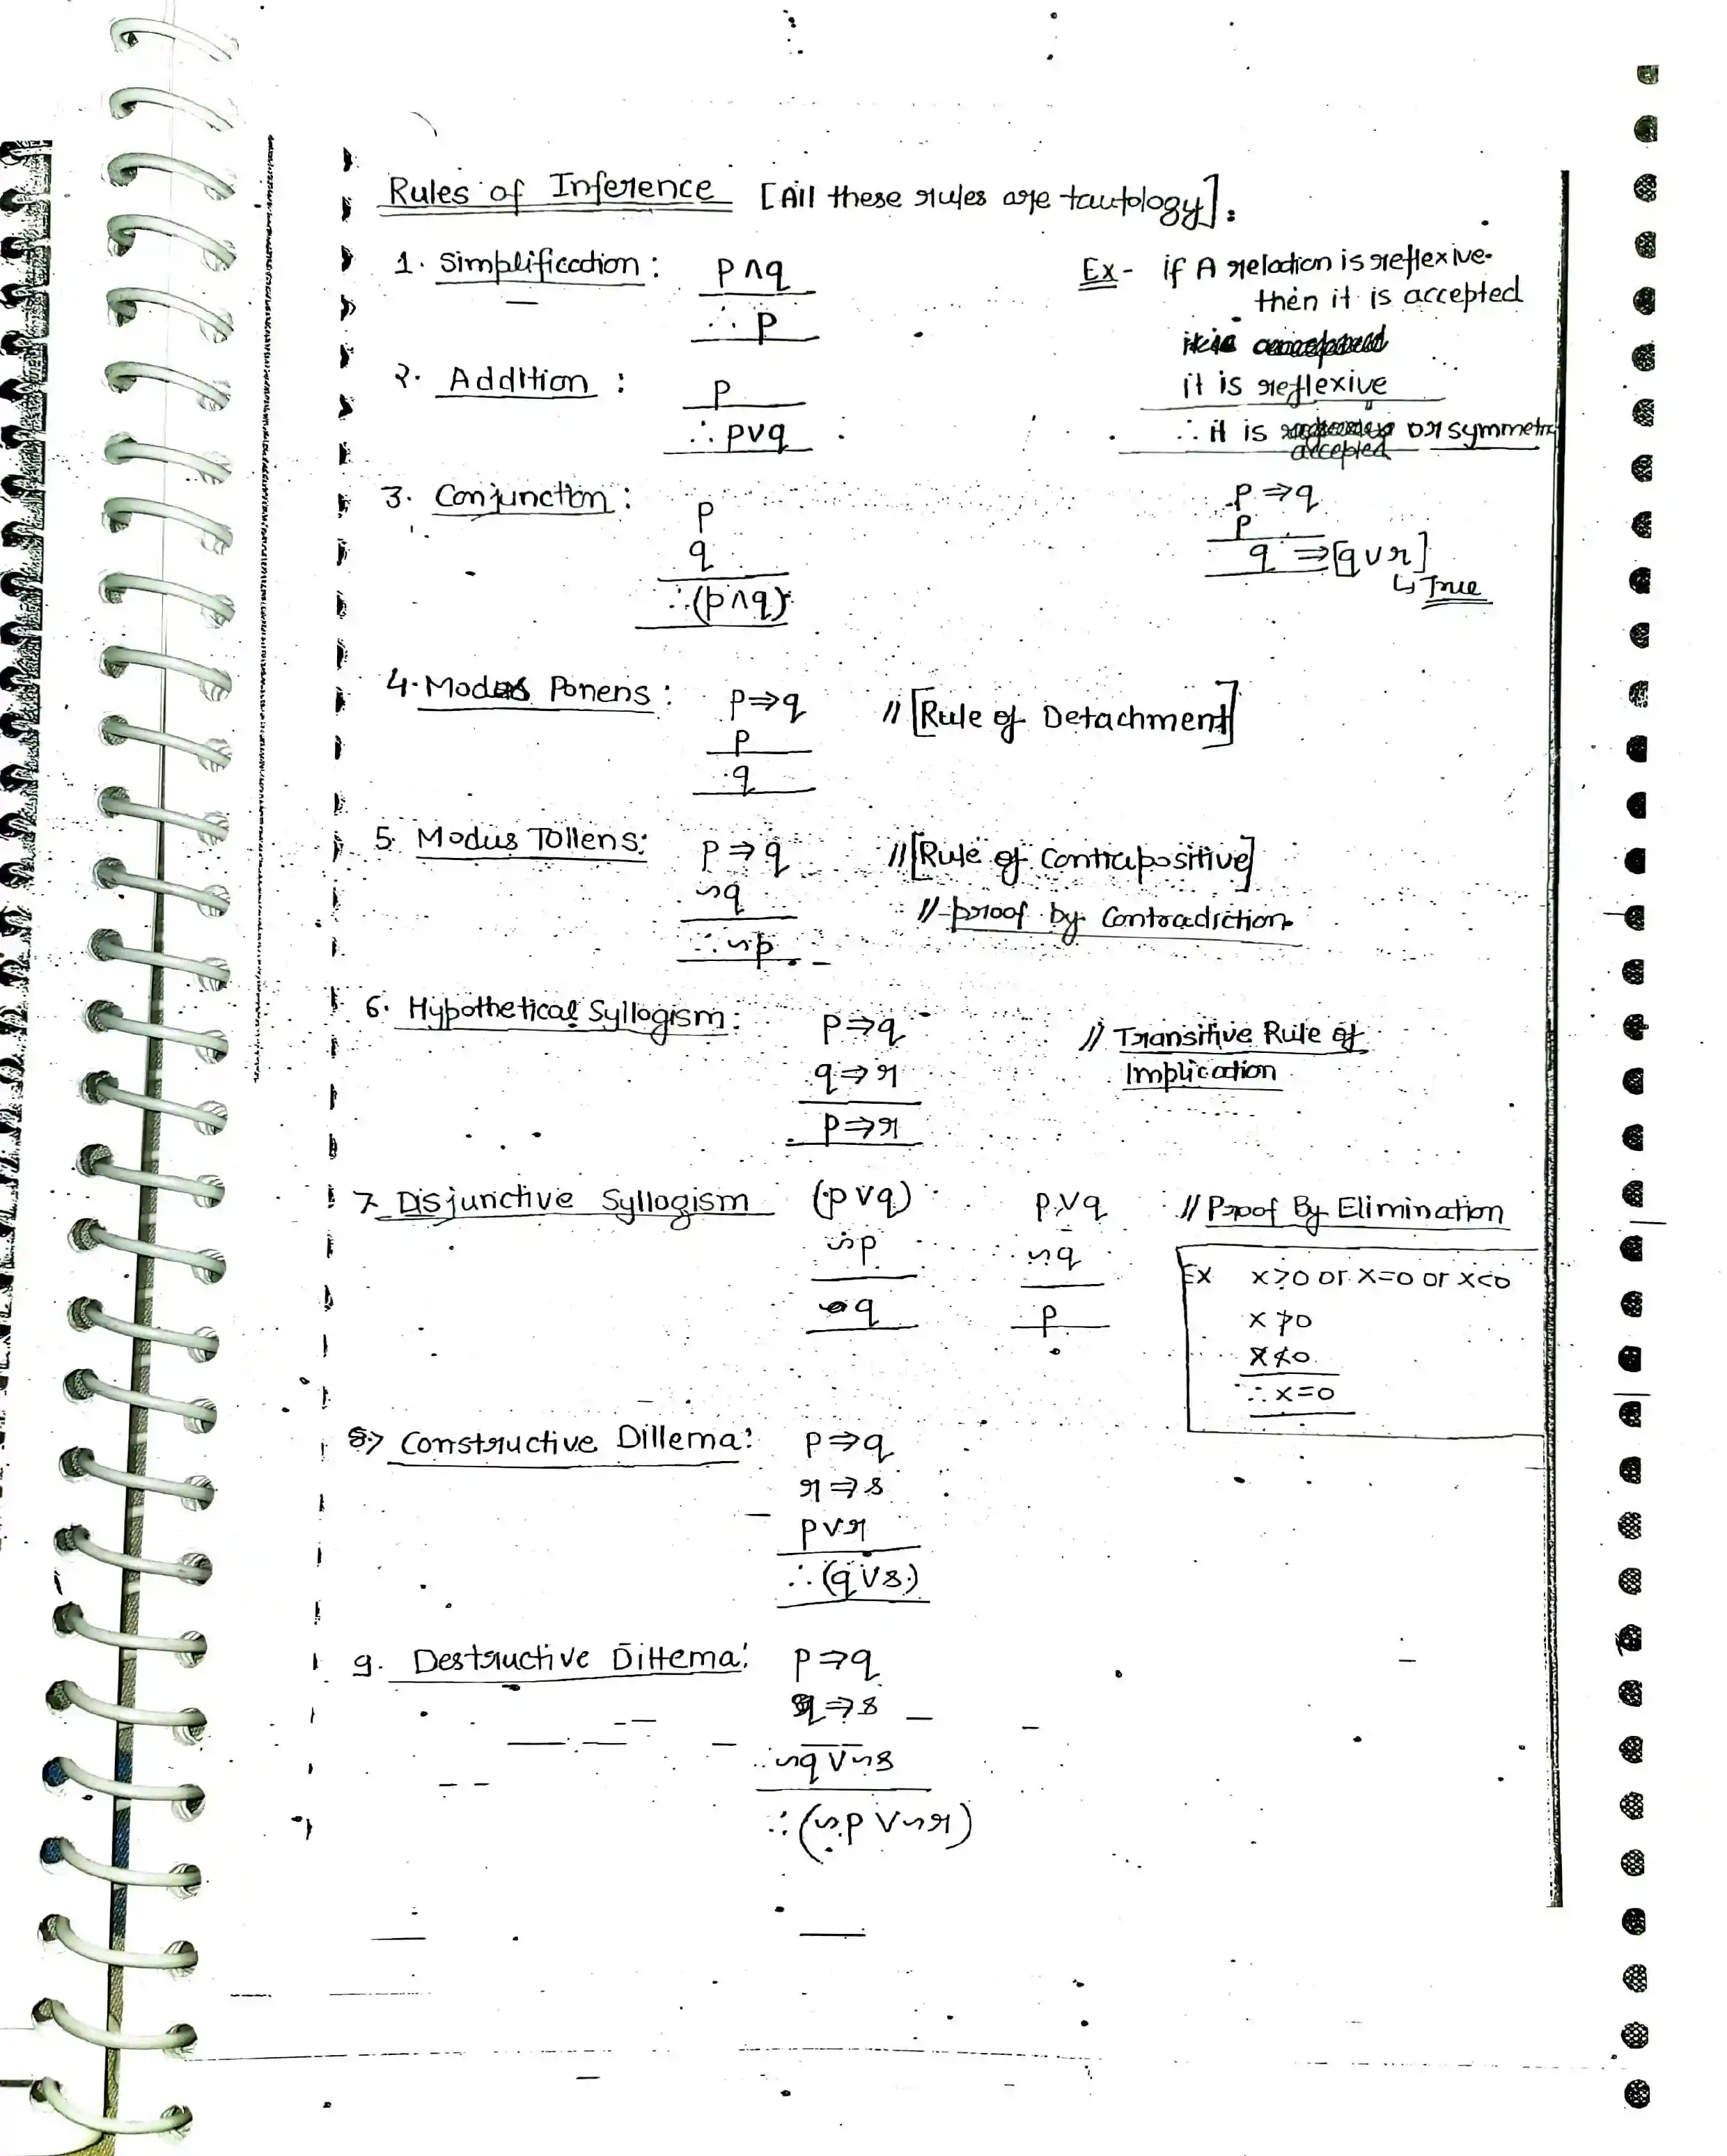 Rules of Inference [All these rules are tautology].
1. Simplification : p∧q
∴ p
2. Addition : p
∴ p∨q
3. Conjunction : p
q
∴ (p∧q)
Ex- if A relation is reflexive
then it is accepted
it is reflexive
∴ it is accepted or symmetric
p⇒q
p
q ⇒[q∨r]
↳ True
4. Modus Ponens : p⇒q // [Rule of Detachment]
p
q
5. Modus Tollens: p⇒q // [Rule of Contrapositive]
~q // proof by Contradiction
∴ ~p
6. Hypothetical Syllogism: p⇒q // Transitive Rule of
q⇒r Implication
p⇒r
7. Disjunctive Syllogism (p∨q) p∨q // Proof By Elimination
~p ~q
q p
Ex x>0 or x=0 or x<0
x≯0
x≮0
∴ x=0
8.> Constructive Dillema: p⇒q
r⇒s
p∨r
∴ (q∨s)
9. Destructive Dillema: p⇒q
r⇒s
~q∨~s
∴ (~p∨~r)